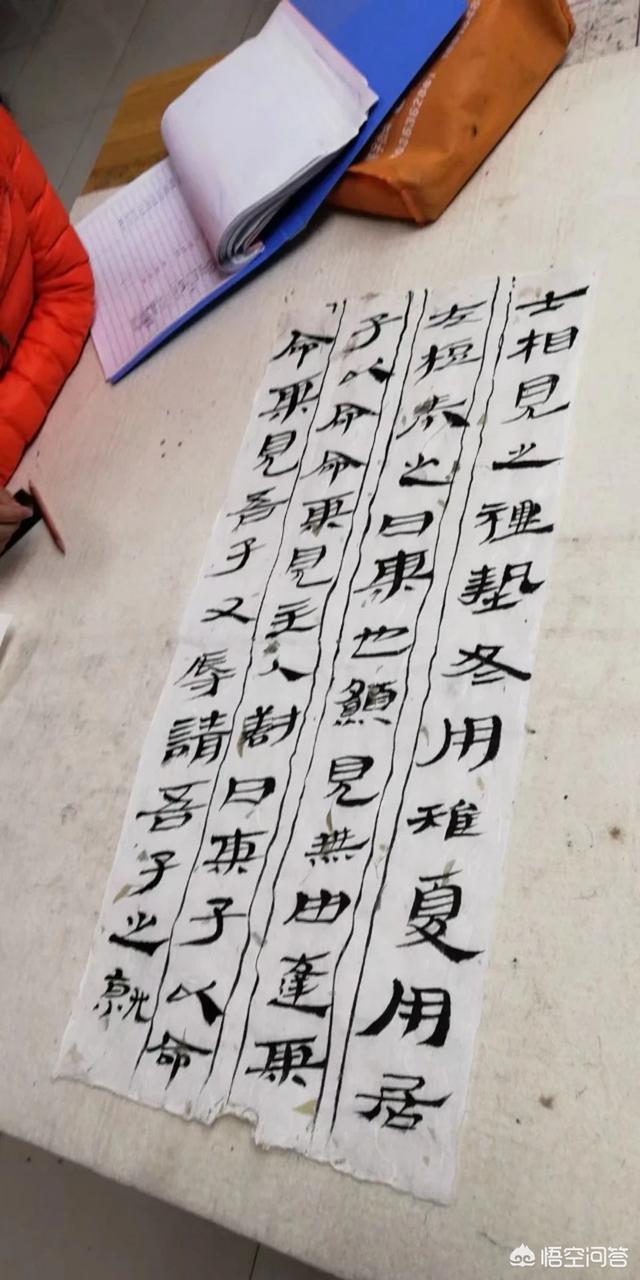 士相見之禮摯冬用雉夏用居
左梪奉之曰某也願見無由達某
子以命命某見主人對曰某子以命
命某見吾子又辱請吾子之就
悟空问答